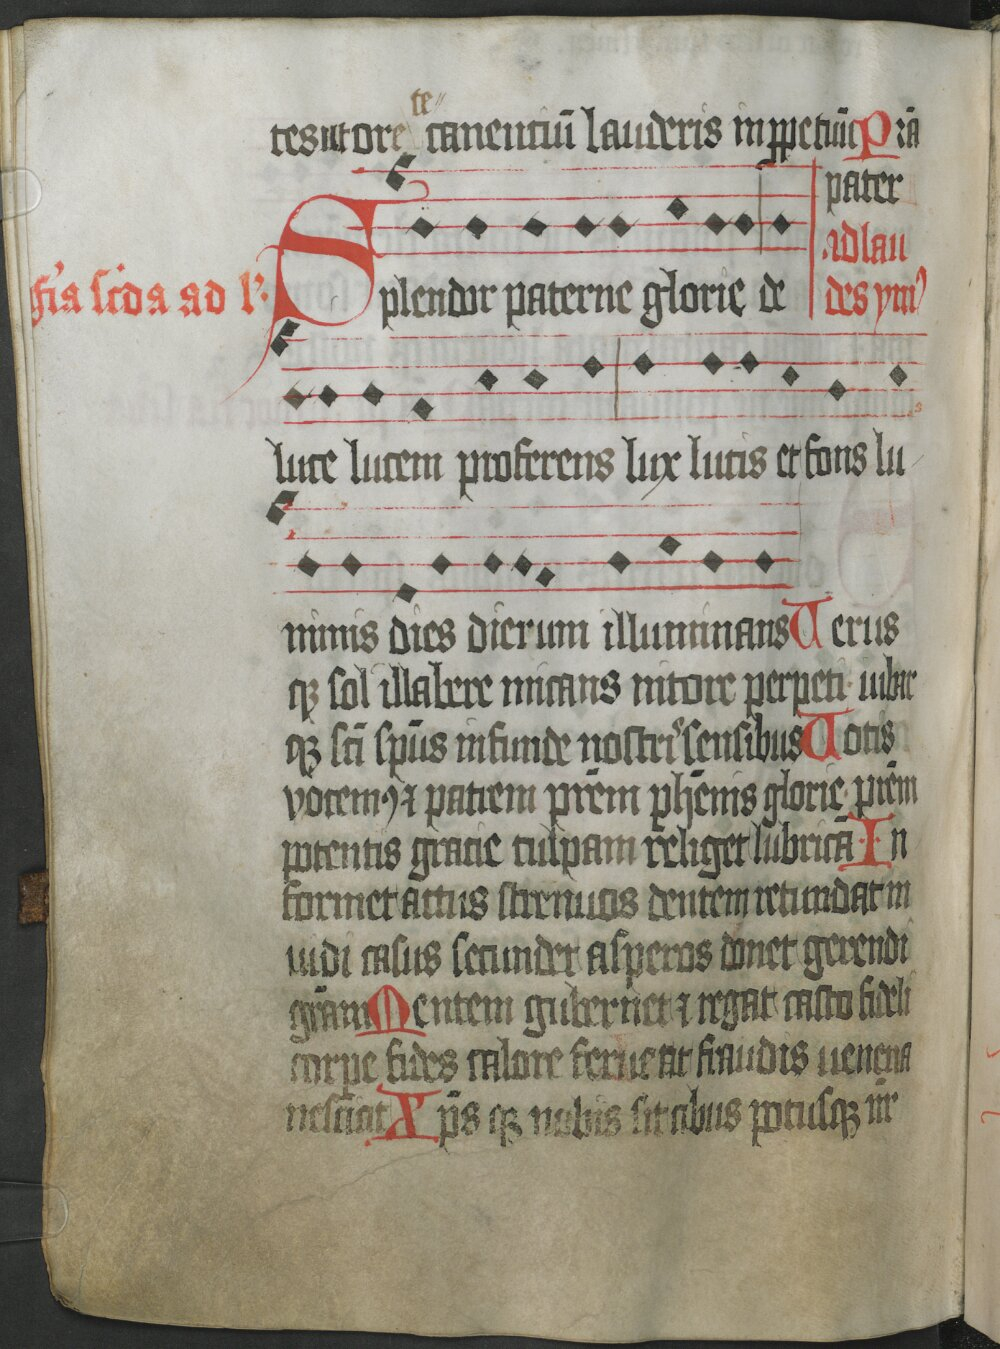 te
tesut ore canentiũ lauderis in ꝑpetuũ P rã
pater
ad lau
fia scda ad l'
Splendor paterne glorie de
des ym̃
luce lucem proferens lux lucis et fons lu
minis dies dierum illuminans Uerus
qꝫ sol illabere micans nitore perpeti iubar
qꝫ sc̃i sp̃us infunde nostri sensibus Uotis
vocemꝰ ⁊ patrem pr̃em ph̃enis glorie pr̃em
potentis gracie culpam religet lubricã In
formet actus strenuos dentem retundat in
uidi casus secundet asperos donet gerendi
gr̃am Mentem gubernet ⁊ regat casto fideli
corpe fides calore ferueat fraudis uenena
nesciat Xp̃s qꝫ nobis sit cibus potusqꝫ nr̃